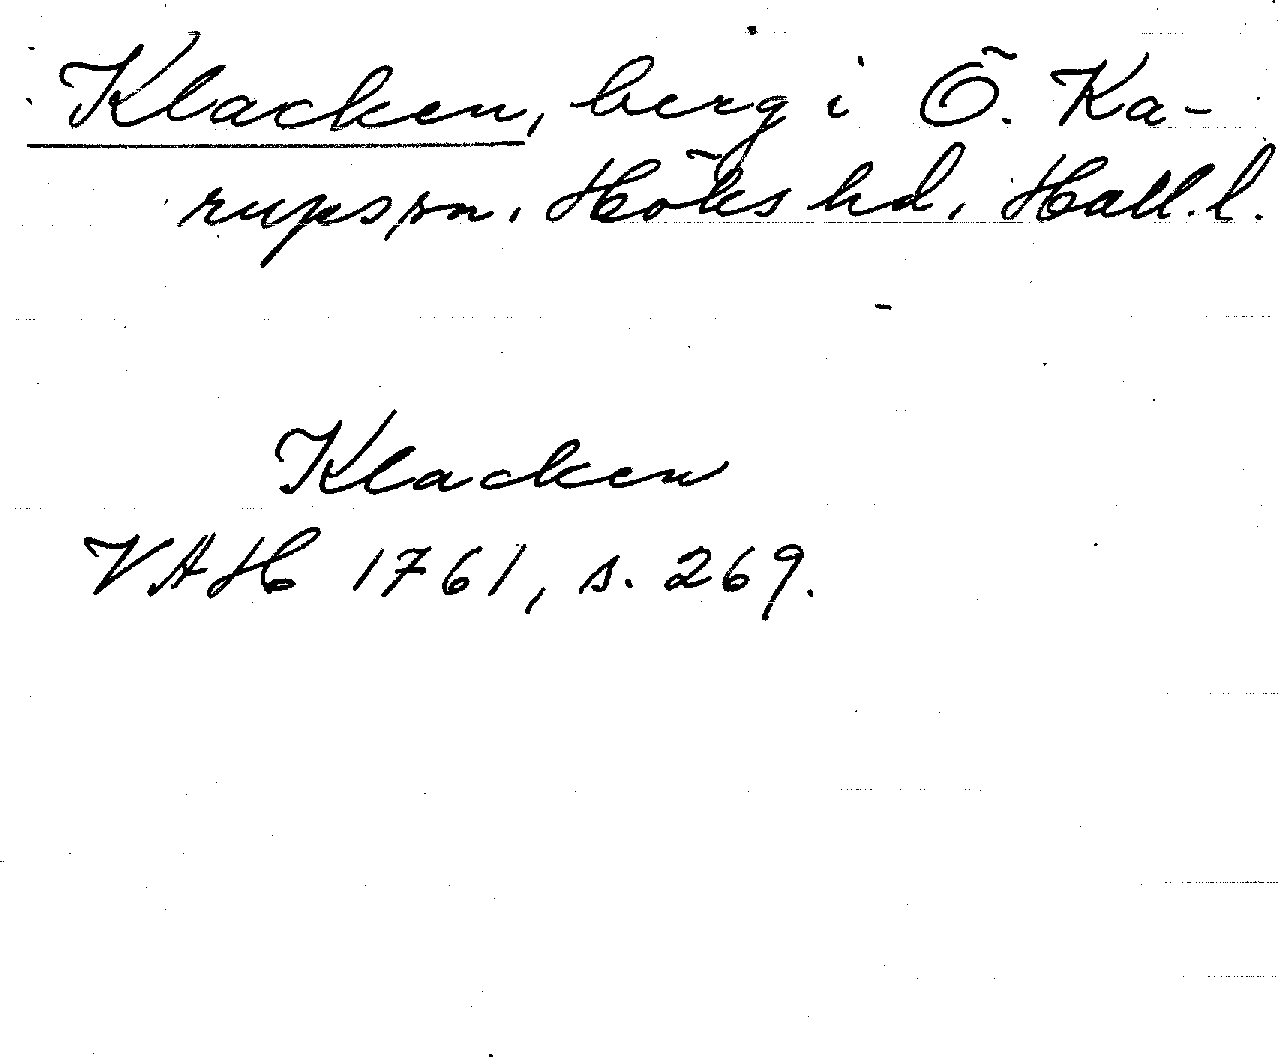 Klacken, berg i Ö. Ka-
rups sn. Höks hd, Hall. l.
Klacken
VAH 1761, s. 269.